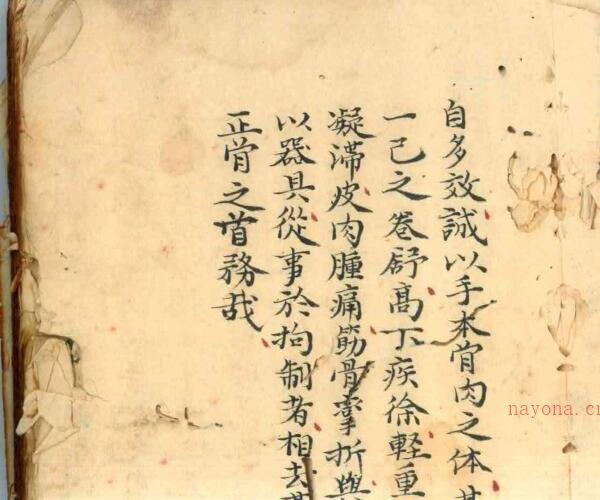 自多效誠以手本骨肉之体其
一己之卷舒髙下疾徐軽重
凝滯皮肉腫痛筋骨挛折與
以器具從事於拘制者相去甚
正骨之首務哉
nayona.cn